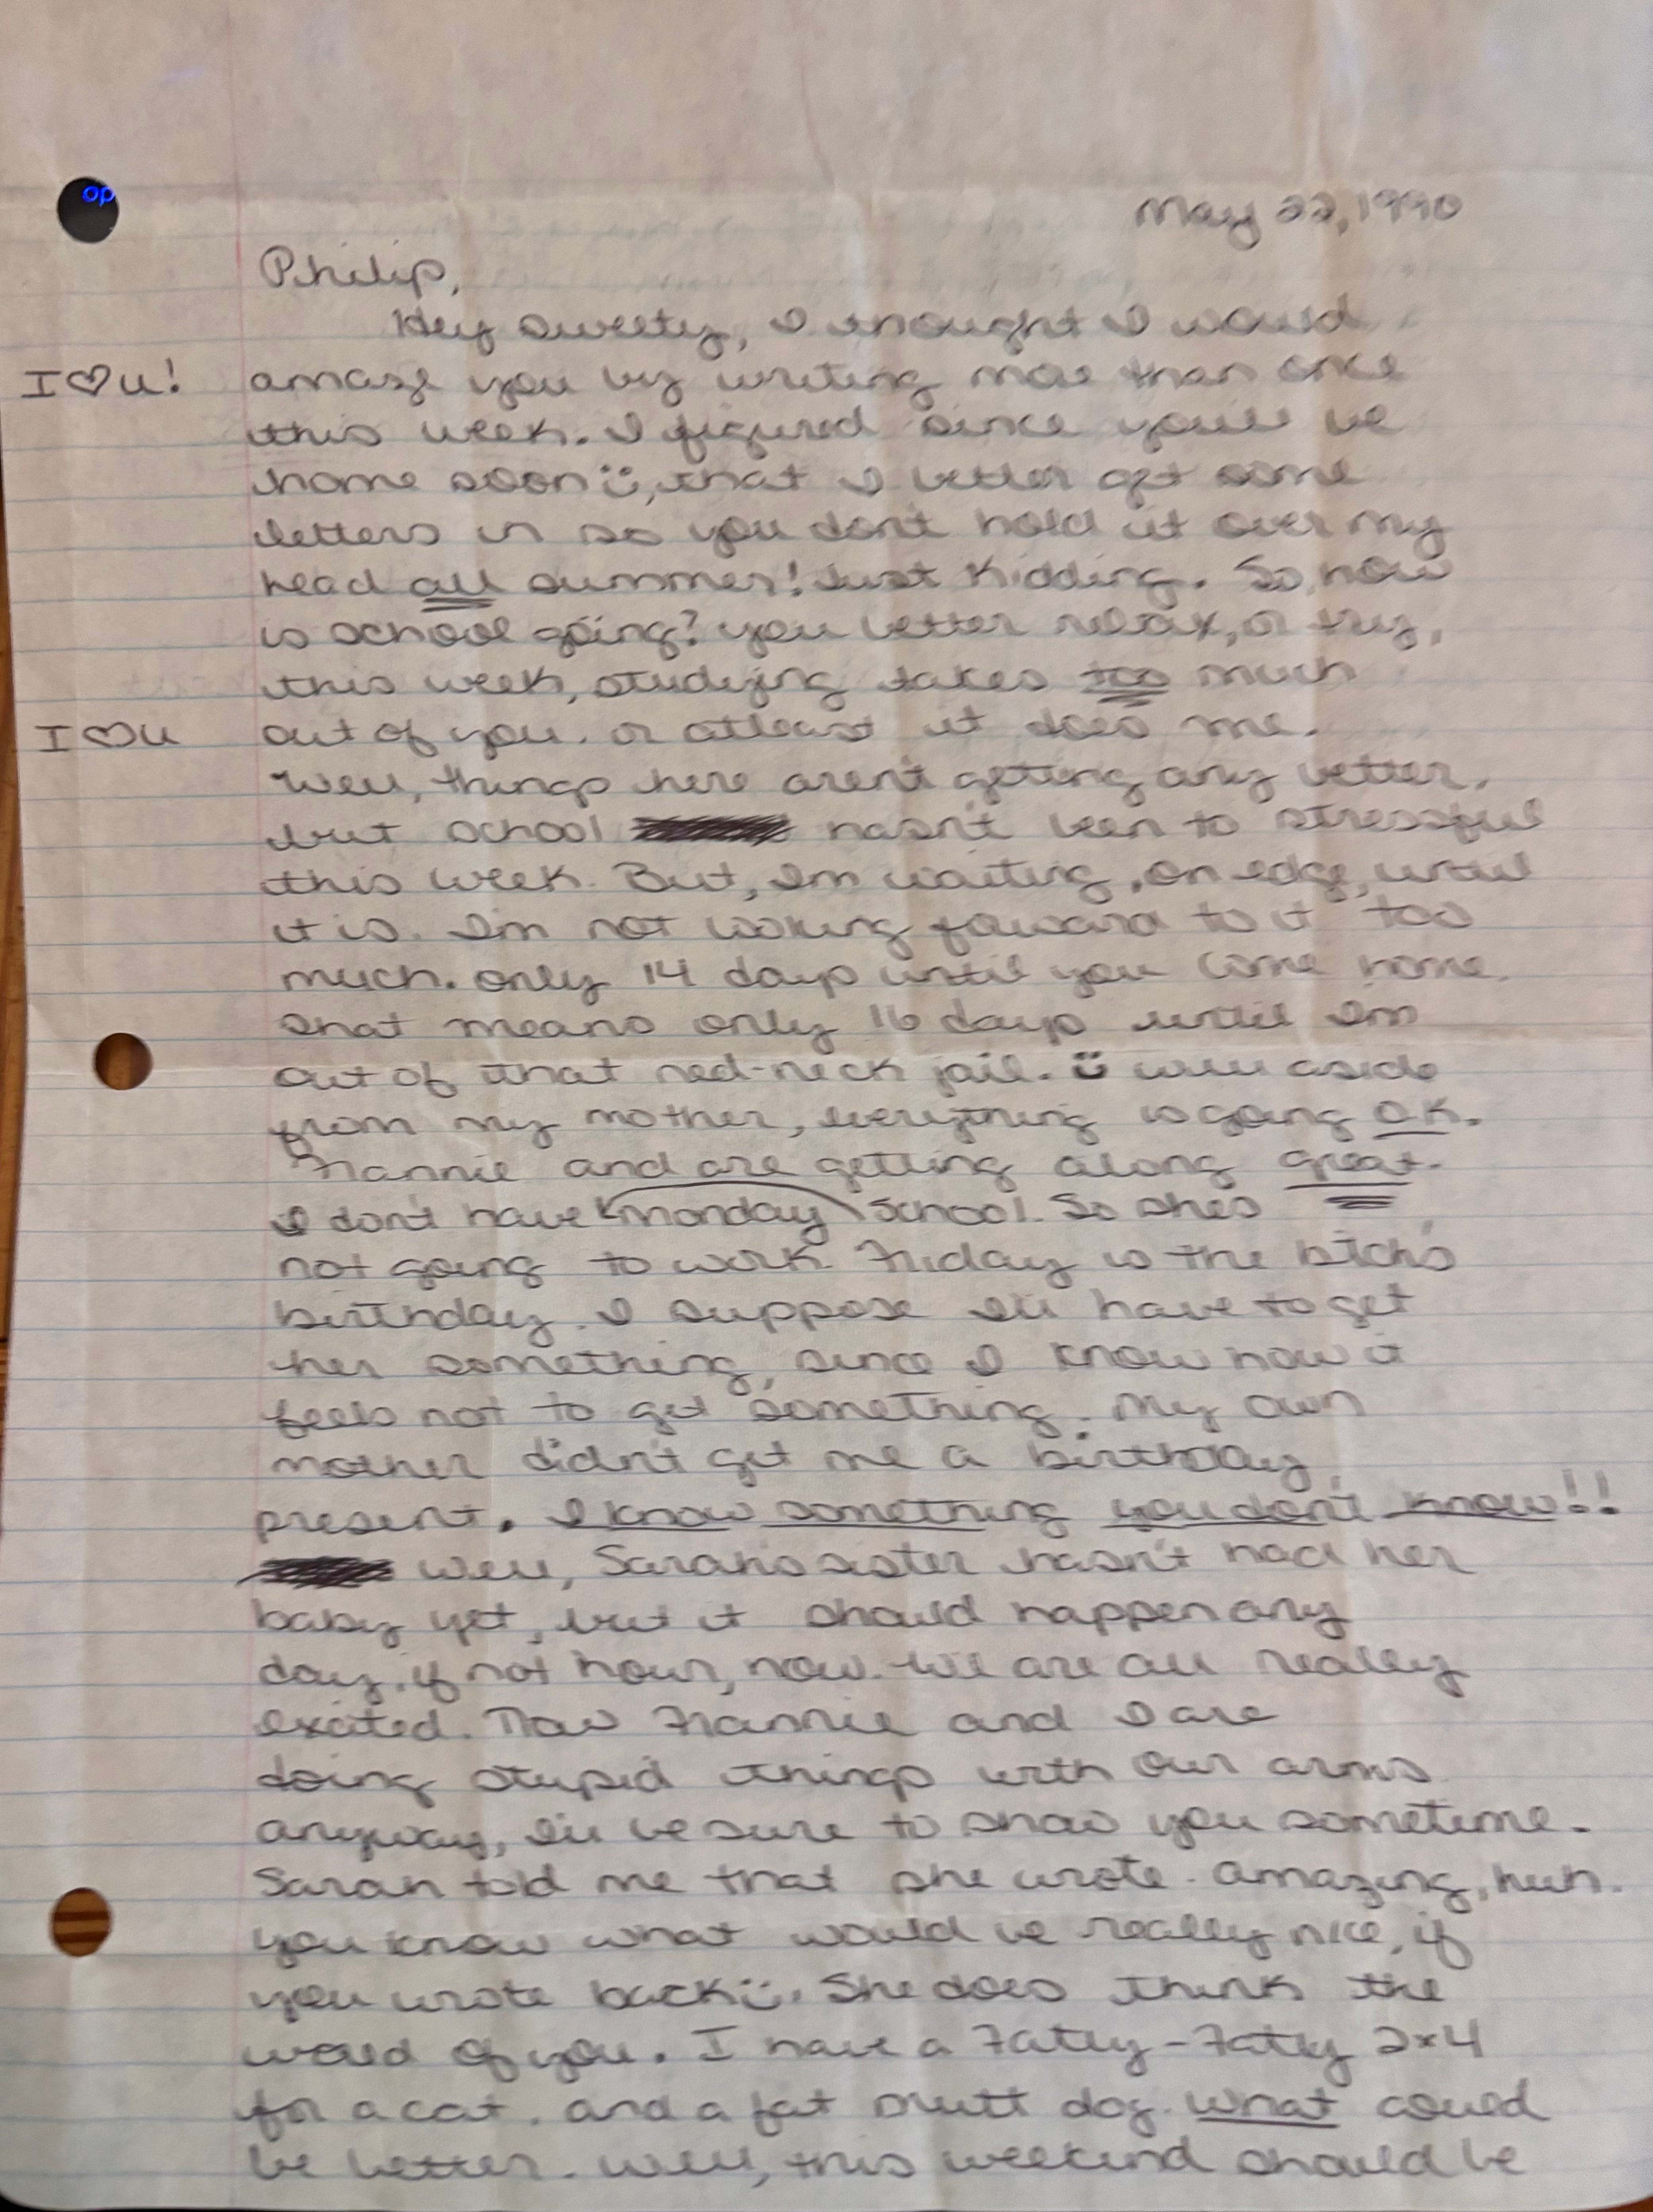 May 22, 1990
Philip,
Hey sweety, I thought I would
I ♡ u! amaze you by writing more than once
this week. I figured since you'll be
home soon :), that I better get some
letters in so you don't hold it over my
head all summer! Just Kidding. So, how
is school going? you better relax, or try,
this week, studying takes too much
I ♡ u out of you. or atleast it does me.
Well, things here aren't getting any better.
but school hasn't been to stressful
this week. But, I'm waiting, on edge, until
it is. I'm not looking foward to it too
much. only 14 days until you come home.
That means only 16 days until I'm
out of that red-neck jail. :) well aside
from my mother, everything is going O.K.
Frannie and are getting along great.
I don't have monday school. So shes
not going to work. Friday is the bitch's
birthday. I suppose I'll have to get
her something, since I know how it
feels not to get something. My own
mother didn't get me a birthday
present. I know something you don't know!!
Well, Sarah's sister hasn't had her
baby yet, but it should happen any
day, if not hour, now. We are all really
excited. Now Frannie and I are
doing stupid things with our arms
anyway, I'll be sure to show you sometime.
Sarah told me that she wrote. amazing, huh.
you know what would be really nice, if
you wrote back :). She does think the
world of you. I have a Fatty-Fatty 2x4
for a cat. and a fat mutt dog. what could
be better. Well, this weekend should be